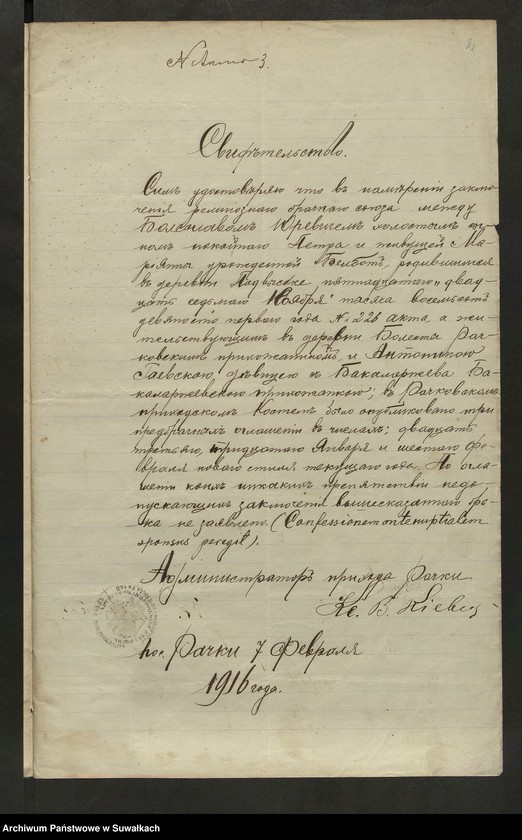 N Акта 3.
2
Свидѣтельство.
Симъ удостовѣряю что въ намѣреніи заклю-
ченія религіознаго брачнаго союза между
Болеславомъ Юревичемъ холостымъ сы-
номъ покойнаго Петра и живущей Ма-
ріянны урожденной родившимся
въ деревни Подвысоке, пятнадцатаго двад-
цать седьмаго Ноября тысяча восемьсотъ
девяносто перваго года № 226 акта, а жи-
тельствующимъ въ деревни Болесты Рач-
ковскимъ прихожаниномъ, и Антониною
Гаевскою дѣвицею съ Бакаларжева Ба-
каларжевскою прихожанкою; въ Рачковскомъ
приходскомъ костелѣ было опубликовано три
предбрачныя оглашенія въ числахъ: двадцать
третьяго, тридцатаго Января и шестаго Фе-
враля новаго стиля текущаго года. По огла-
шеніи коихъ никакихъ препятствій недо-
пускающихъ заключенія вышесказаннаго бра-
ка не заявлено. (Confessionem antenuptialem
sponsus peregit).
Администраторъ прихода Рачки
Кс. В.
пос. Рачки 7 Февраля
1916 года.
Archiwum Państwowe w Suwałkach